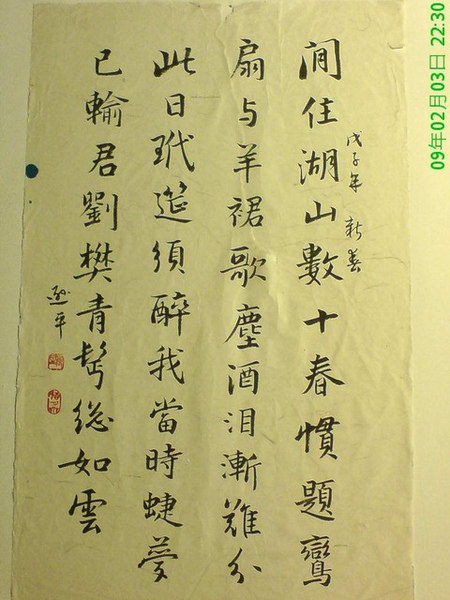 閒住湖山數十春慣題鸞
戊子年 新春
扇与羊裙歌塵酒泪漸難分
此日玳筵須醉我當時蜨夢
已輸君劉樊青髩總如雲
平
09年02月03日 22:30